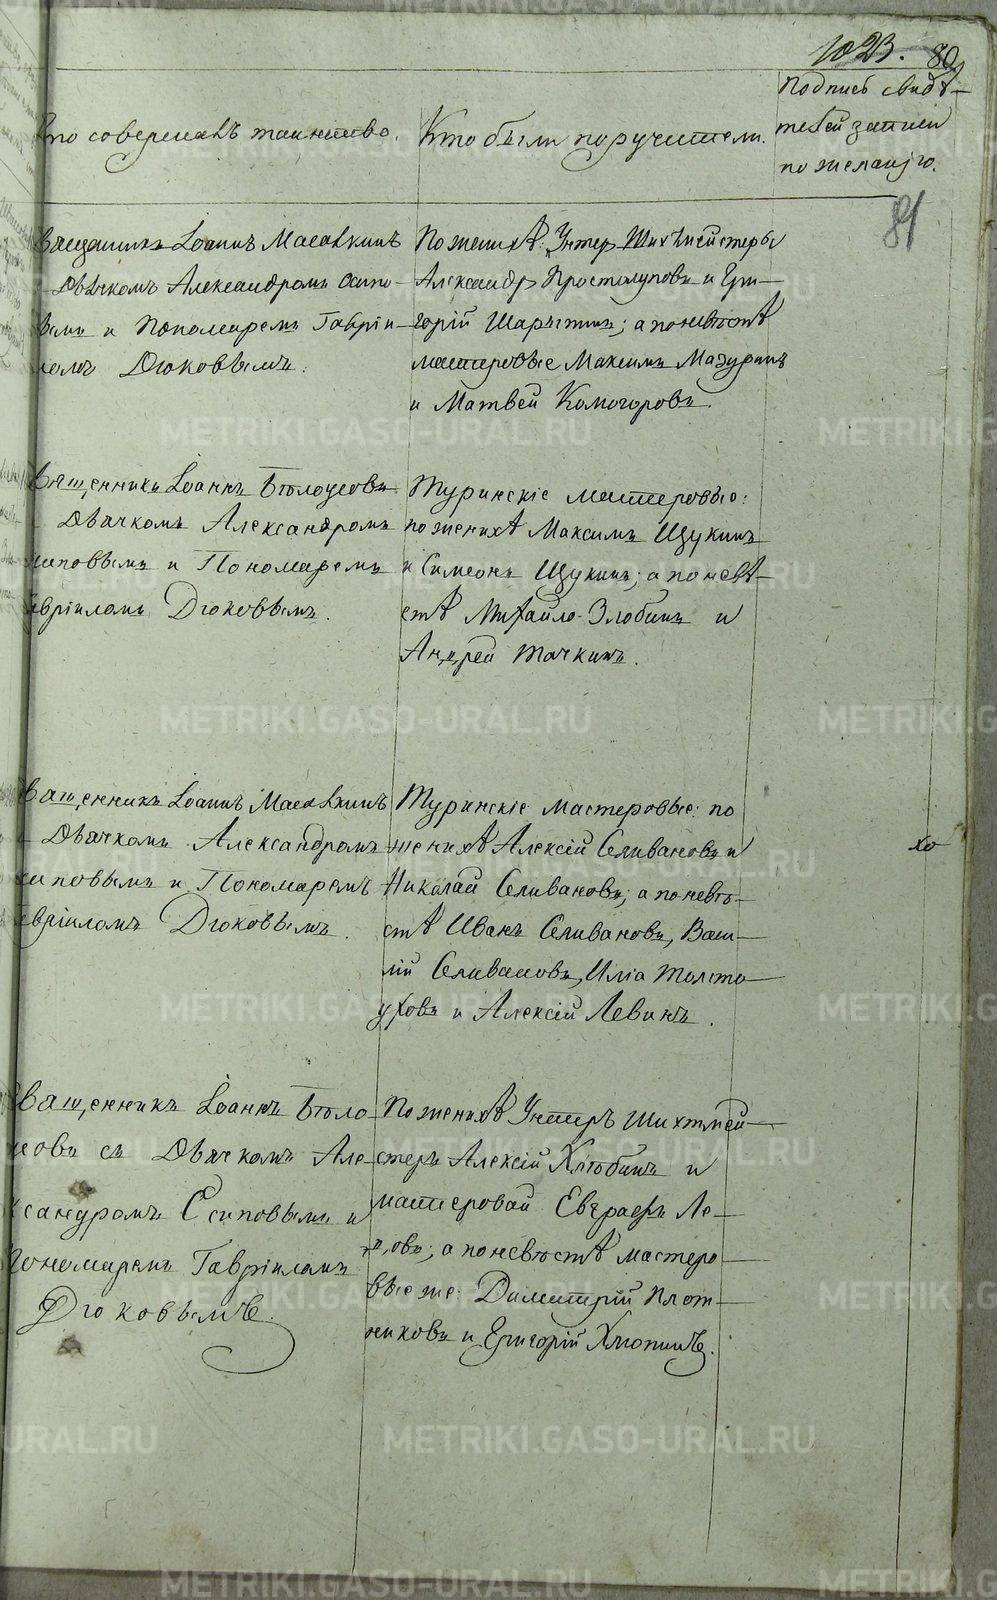 1023. 80
Кто совершалъ таинство.
Кто были поручители.
Подпись свидѣ-
телей записи
по желанію.
81
Священникъ Іоаннъ Масалкинъ
Дьячкомъ Александромъ Осипо-
вымъ и Пономаремъ Гаврiи-
ломъ Дюковымъ.
По женихѣ: Унтер Шихтмейстеры
Александр Простолуповъ и Гри-
горій Шарыгинъ; а по невѣстѣ
мастеровые Максимъ Мазуринъ
и Матвей Комогоровъ.
Священникъ Іоаннъ Бѣлоусовъ
Дьячкомъ Александромъ
сиповымъ и Пономаремъ
авріиломъ Дюковымъ.
Туринскіе мастеровые:
по женихѣ Максимъ Щукинъ
и Симеонъ Щукинъ; а по невѣ-
стѣ Михайло Злобинъ и
Андрей Тачкинъ.
Священникъ Іоаннъ Масалкинъ
Дьячкомъ Александромъ
сиповымъ и Пономаремъ
авріиломъ Дюковымъ.
Туринскіе мастеровые: по
женихѣ Алексій Селивановъ и
Николай Селивановъ; а по невѣ-
стѣ Иванъ Селивановъ, Васи-
лій Селивановъ, Иліа Толсто-
уховъ и Алексій Левинъ.
Священникъ Іоаннъ Бѣло-
усовъ съ Дьячкомъ Але-
ксандромъ Осиповымъ и
Пономаремъ Гавріиломъ
Дюковымъ.
По женихѣ Унтеръ Шихтмей-
стеръ Алексій Хлѣбинъ и
мастеровай Евграфъ Ле-
; а по невѣстѣ мастеро-
вые же: Димитрій Плот-
никовъ и Григорій Хлопинъ.
METRIKI.GASO-URAL.RU